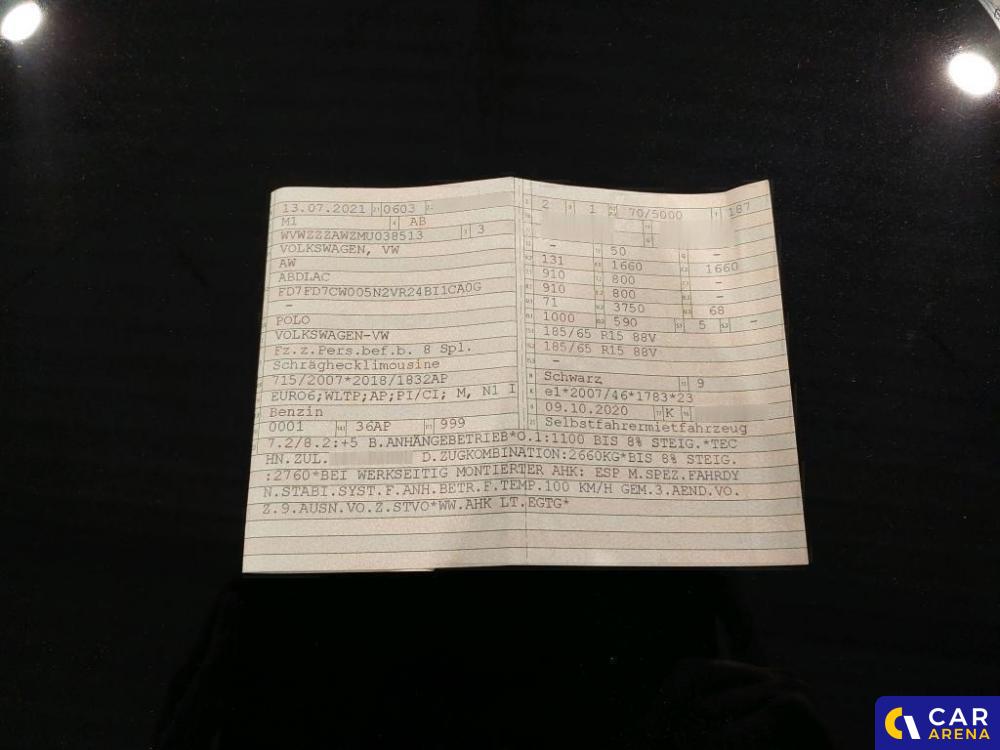 13.07.2021 0603
M1 AB
WVWZZZAWZMU038513 3
VOLKSWAGEN, VW
AW
ABDLAC
FD7FD7CW005N2VR24BI1CA0G
–
POLO
VOLKSWAGEN-VW
Fz.z.Pers.bef.b. 8 Spl.
Schräghecklimousine
715/2007*2018/1832AP
EURO6;WLTP;AP;PI/CI; M, N1 I
Benzin
0001 36AP 999
2 1 70/5000 187
– 50 –
131 1660 1660
910 800 –
910 800 –
71 3750 68
1000 590 5 –
185/65 R15 88V
185/65 R15 88V
–
Schwarz 9
e1*2007/46*1783*23
09.10.2020 K
Selbstfahrermietfahrzeug
7.2/8.2:+5 B.ANHÄNGEBETRIEB*O.1:1100 BIS 8% STEIG.*TEC
HN.ZUL. D.ZUGKOMBINATION:2660KG*BIS 8% STEIG.
:2760*BEI WERKSEITIG MONTIERTER AHK: ESP M.SPEZ.FAHRDY
N.STABI.SYST.F.ANH.BETR.F.TEMP.100 KM/H GEM.3.AEND.VO.
Z.9.AUSN.VO.Z.STVO*WW.AHK LT.EGTG*
CAR
ARENA